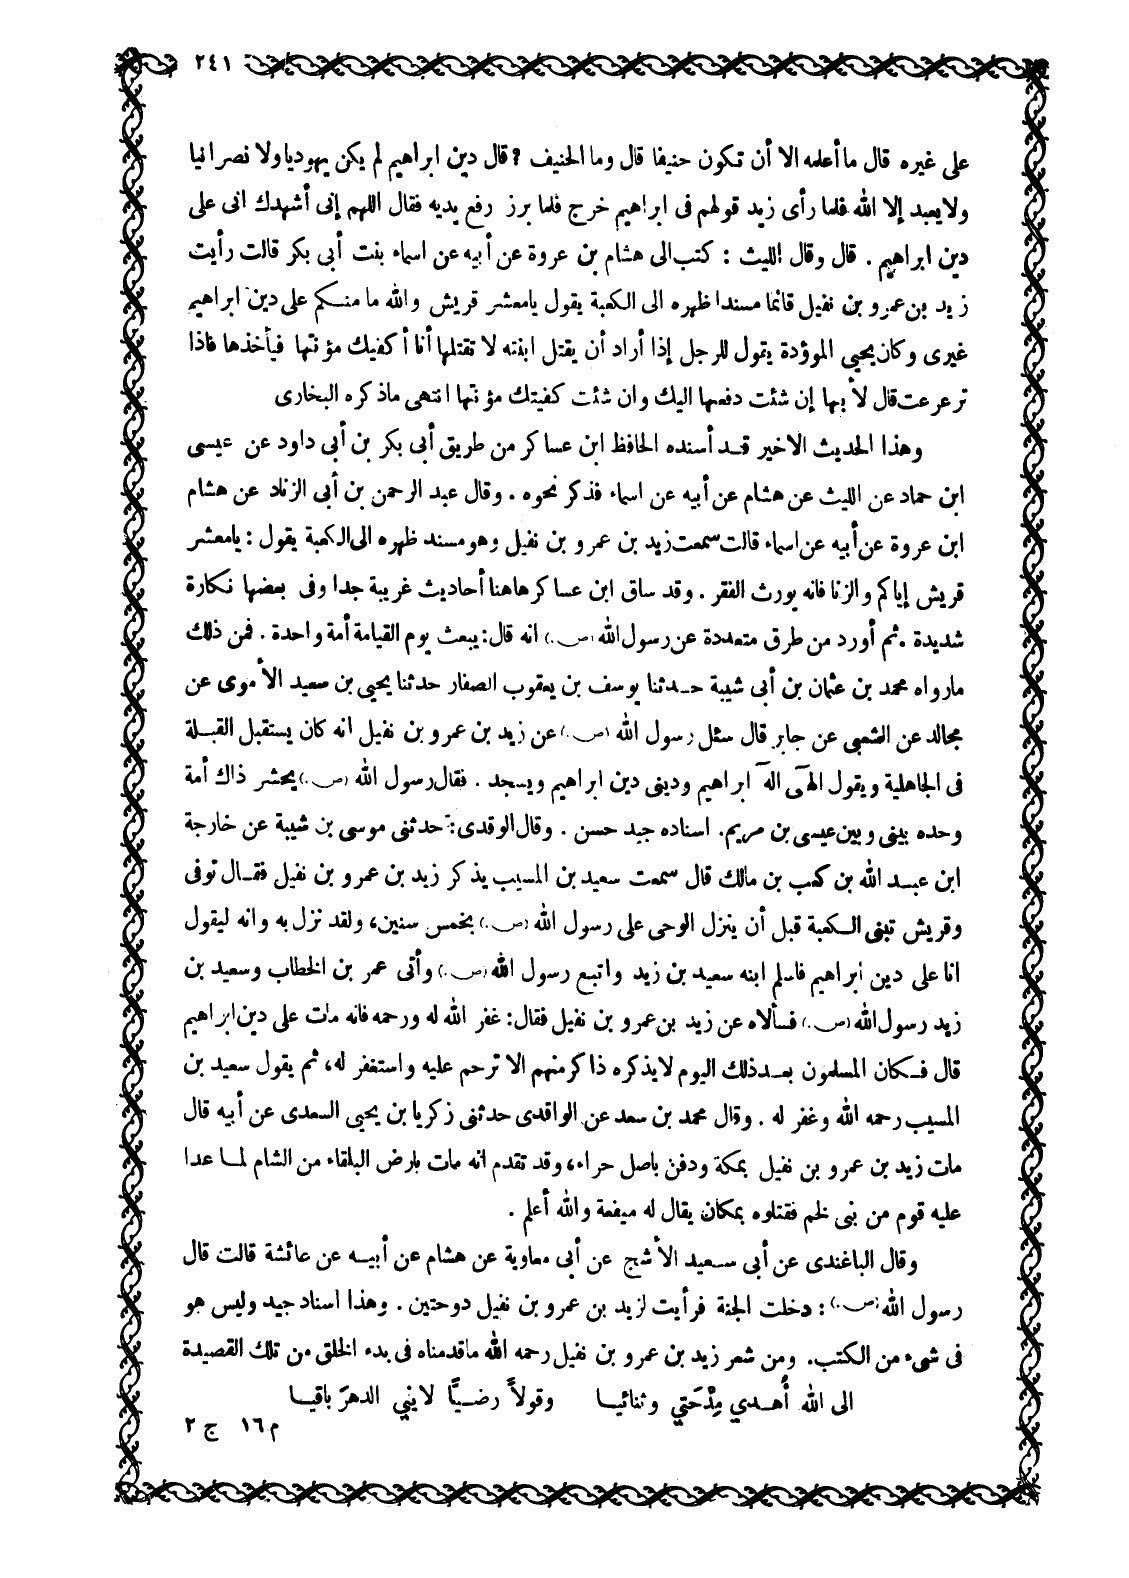 ٢٤١
على غيره قال ما أعلمه الا أن تكون حنيفا قال وما الحنيف ? قال دين ابراهيم لم يكن يهوديا ولا نصرانيا
ولا يعبد إلا الله فلما رأى زيد قولهم فى ابراهيم خرج فلما برز رفع يديه فقال اللهم إنى أشهدك انى على
دين ابراهيم . قال وقال الليث : كتب الى هشام بن عروة عن أبيه عن اسماء بنت أبى بكر قالت رأيت
زيد بن عمرو بن نفيل قائما مسندا ظهره الى الكعبة يقول يامعشر قريش والله ما منكم على دين ابراهيم
غيرى وكان يحيى الموؤدة يقول للرجل إذا أراد أن يقتل ابنته لا تقتلها أنا أكفيك مؤنتها فيأخذها فاذا
ترعرعت قال لأبيها إن شئت دفعتها اليك وان شئت كفيتك مؤنتها انتهى ماذكره البخارى
وهذا الحديث الاخير قد أسنده الحافظ ابن عساكر من طريق أبى بكر بن أبى داود عن عيسى
ابن حماد عن الليث عن هشام عن أبيه عن اسماء فذكر نحوه . وقال عبد الرحمن بن أبى الزناد عن هشام
ابن عروة عن أبيه عن اسماء قالت سمعت زيد بن عمرو بن نفيل وهو مسند ظهره الى الكعبة يقول : يامعشر
قريش إياكم والزنا فانه يورث الفقر . وقد ساق ابن عساكر هاهنا أحاديث غريبة جدا وفى بعضها نكارة
شديدة . ثم أورد من طرق متعددة عن رسول الله (ص) انه قال: يبعث يوم القيامة أمة واحدة . فمن ذلك
مارواه محمد بن عثمان بن أبى شيبة حدثنا يوسف بن يعقوب الصفار حدثنا يحيى بن سعيد الأموى عن
مجالد عن الشعبى عن جابر قال سئل رسول الله (ص) عن زيد بن عمرو بن نفيل انه كان يستقبل القبلة
فى الجاهلية ويقول الهى اله ابراهيم ودينى دين ابراهيم ويسجد . فقال رسول الله (ص) يحشر ذاك أمة
وحده بينى وبين عيسى بن مريم. اسناده جيد حسن . وقال الوقدى: حدثنى موسى بن شيبة عن خارجة
ابن عبد الله بن كعب بن مالك قال سمعت سعيد بن المسيب يذكر زيد بن عمرو بن نفيل فقال توفى
وقريش تبنى الكعبة قبل أن ينزل الوحى على رسول الله (ص) بخمس سنين، ولقد نزل به وانه ليقول
انا على دين ابراهيم فاسلم ابنه سعيد بن زيد واتبع رسول الله (ص) وأتى عمر بن الخطاب وسعيد بن
زيد رسول الله (ص) فسألاه عن زيد بن عمرو بن نفيل فقال: غفر الله له ورحمه فانه مات على دين ابراهيم
قال فكان المسلمون بعد ذلك اليوم لا يذكره ذاكر منهم الا ترحم عليه واستغفر له، ثم يقول سعيد بن
المسيب رحمه الله وغفر له . وقال محمد بن سعد عن الواقدى حدثنى زكريا بن يحيى السعدى عن أبيه قال
مات زيد بن عمرو بن نفيل بمكة ودفن باصل حراء، وقد تقدم انه مات بارض البلقاء من الشام لما عدا
عليه قوم من بنى لخم فقتلوه بمكان يقال له ميفعة والله أعلم .
وقال الباغندى عن أبى سعيد الأشج عن أبى معاوية عن هشام عن أبيه عن عائشة قالت قال
رسول الله (ص) : دخلت الجنة فرأيت لزيد بن عمرو بن نفيل دوحتين . وهذا اسناد جيد وليس هو
فى شىء من الكتب. ومن شعر زيد بن عمرو بن نفيل رحمه الله ماقدمناه فى بدء الخلق من تلك القصيدة
الى الله أُهدي مِدْحَتي وثنائيا وقولاً رضيًّا لا يني الدهرَ باقيا
م ١٦ ج ٢